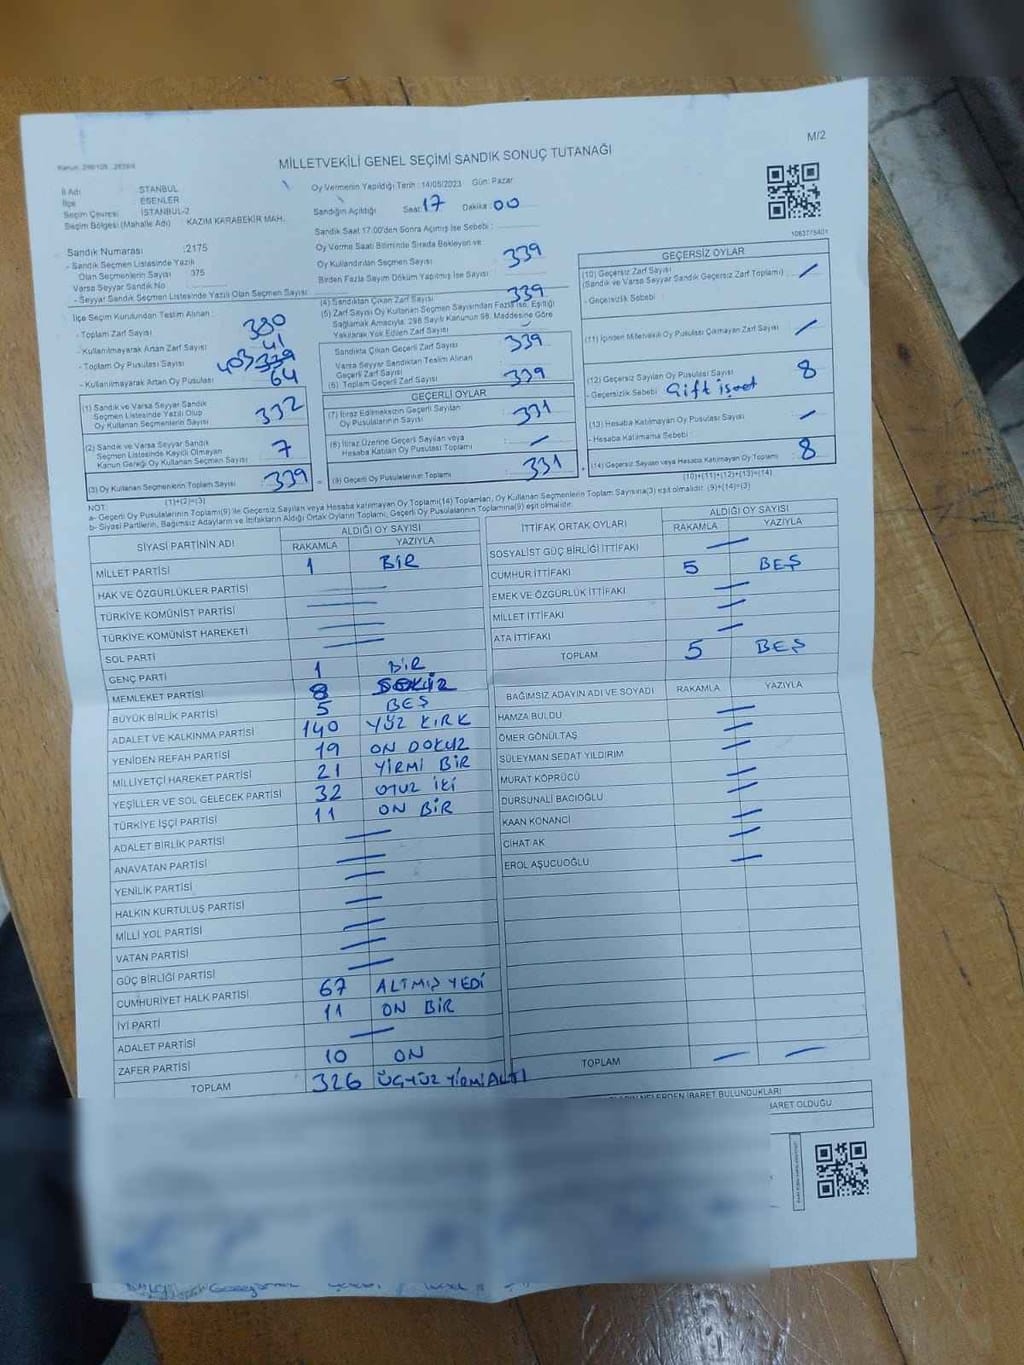 M/2
MİLLETVEKİLİ GENEL SEÇİMİ SANDIK SONUÇ TUTANAĞI
İl Adı : STANBUL
İlçe : ESENLER
Seçim Çevresi : İSTANBUL-2
Seçim Bölgesi (Mahalle Adı) KAZIM KARABEKİR MAH.
Oy Vermenin Yapıldığı Tarih : 14/05/2023 Gün: Pazar
Sandığın Açıldığı Saat: 17 Dakika: 00
Sandık Saat 17:00'den Sonra Açımış İse Sebebi :
Oy Verme Saati Bitiminde Sırada Bekleyen ve
Oy Kullandırılan Seçmen Sayısı : 339
Birden Fazla Sayım Döküm Yapılmış İse Sayısı
1063775401
Sandık Numarası : 2175
- Sandık Seçmen Listesinde Yazılı
Olan Seçmenlerin Sayısı 375
Varsa Seyyar Sandık No
- Seyyar Sandık Seçmen Listesinde Yazılı Olan Seçmen Sayısı
İlçe Seçim Kurulundan Teslim Alınan :
- Toplam Zarf Sayısı 380
- Kullanılmayarak Artan Zarf Sayısı 41
- Toplam Oy Pusulası Sayısı 403 339
- Kullanılmayarak Artan Oy Pusulası 64
(1) Sandık ve Varsa Seyyar Sandık
Seçmen Listesinde Yazılı Olup
Oy Kullanan Seçmenlerin Sayısı 332
(2) Sandık ve Varsa Seyyar Sandık
Seçmen Listesinde Kayıtlı Olmayan
Kanun Gereği Oy Kullanan Seçmen Sayısı 7
(3) Oy Kullanan Seçmenlerin Toplam Sayısı 339
(1)+(2)=(3)
(4) Sandıktan Çıkan Zarf Sayısı 339
(5) Zarf Sayısı Oy Kullanan Seçmen Sayısından Fazla İse, Eşitliği
Sağlamak Amacıyla, 298 Sayılı Kanunun 98. Maddesine Göre
Yakılarak Yok Edilen Zarf Sayısı
Sandıkta Çıkan Geçerli Zarf Sayısı 339
Varsa Seyyar Sandıktan Teslim Alınan
Geçerli Zarf Sayısı
(6) Toplam Geçerli Zarf Sayısı 339
GEÇERLİ OYLAR
(7) İtiraz Edilmeksizin Geçerli Sayılan
Oy Pusulalarının Sayısı 331
(8) İtiraz Üzerine Geçerli Sayılan veya
Hesaba Katılan Oy Pusulası Toplamı
(9) Geçerli Oy Pusulalarının Toplamı 331
GEÇERSİZ OYLAR
(10) Geçersiz Zarf Sayısı
(Sandık ve Varsa Seyyar Sandık Geçersiz Zarf Toplamı)
- Geçersizlik Sebebi
(11) İçinden Milletvekili Oy Pusulası Çıkmayan Zarf Sayısı
(12) Geçersiz Sayılan Oy Pusulası Sayısı 8
- Geçersizlik Sebebi Çift işaret
(13) Hesaba Katılmayan Oy Pusulası Sayısı
- Hesaba Katılmama Sebebi
(14) Geçersiz Sayılan veya Hesaba Katılmayan Oy Toplamı 8
(10)+(11)+(12)+(13)=(14)
NOT:
a- Geçerli Oy Pusulalarının Toplamı(9) ile Geçersiz Sayılan veya Hesaba katılmayan Oy Toplamı(14) Toplamları, Oy Kullanan Seçmenlerin Toplam Sayısına(3) eşit olmalıdır. (9)+(14)=(3)
b- Siyasi Partilerin, Bağımsız Adayların ve İttifakların Aldığı Ortak Oyların Toplamı, Geçerli Oy Pusulalarının Toplamına(9) eşit olmalıdır.
SİYASİ PARTİNİN ADI ALDIĞI OY SAYISI
RAKAMLA YAZIYLA
MİLLET PARTİSİ 1 BİR
HAK VE ÖZGÜRLÜKLER PARTİSİ
TÜRKİYE KOMÜNİST PARTİSİ
TÜRKİYE KOMÜNİST HAREKETİ
SOL PARTİ
GENÇ PARTİ 1 BİR
MEMLEKET PARTİSİ 8 SEKİZ
BÜYÜK BİRLİK PARTİSİ 5 BEŞ
ADALET VE KALKINMA PARTİSİ 140 YÜZ KIRK
YENİDEN REFAH PARTİSİ 19 ON DOKUZ
MİLLİYETÇİ HAREKET PARTİSİ 21 YİRMİ BİR
YEŞİLLER VE SOL GELECEK PARTİSİ 32 OTUZ İKİ
TÜRKİYE İŞÇİ PARTİSİ 11 ON BİR
ADALET BİRLİK PARTİSİ
ANAVATAN PARTİSİ
YENİLİK PARTİSİ
HALKIN KURTULUŞ PARTİSİ
MİLLİ YOL PARTİSİ
VATAN PARTİSİ
GÜÇ BİRLİĞİ PARTİSİ
CUMHURİYET HALK PARTİSİ 67 ALTMIŞ YEDİ
İYİ PARTİ 11 ON BİR
ADALET PARTİSİ
ZAFER PARTİSİ 10 ON
TOPLAM 326 ÜÇYÜZ YİRMİALTI
İTTİFAK ORTAK OYLARI ALDIĞI OY SAYISI
RAKAMLA YAZIYLA
SOSYALİST GÜÇ BİRLİĞİ İTTİFAKI
CUMHUR İTTİFAKI 5 BEŞ
EMEK VE ÖZGÜRLÜK İTTİFAKI
MİLLET İTTİFAKI
ATA İTTİFAKI
TOPLAM 5 BEŞ
BAĞIMSIZ ADAYIN ADI VE SOYADI RAKAMLA YAZIYLA
HAMZA BULDU
ÖMER GÖNÜLTAŞ
SÜLEYMAN SEDAT YILDIRIM
MURAT KÖPRÜCÜ
DURSUNALİ BACIOĞLU
KAAN KONANCİ
CİHAT AK
EROL AŞUCUOĞLU
TOPLAM
NELERDEN İBARET BULUNDUKLARI
BARET OLDUĞU